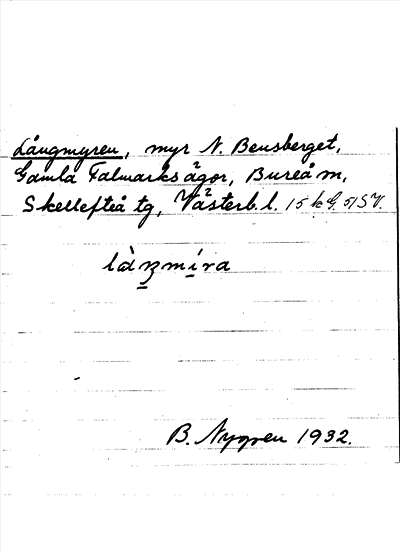 Långmyren, myr N. Bensberget,
Gamla Falmarks ägor, Bureå m,
Skellefteå tg, Västerb. l. 15 k G. 51 SV.
làŋmíra
B. Nygren 1932.